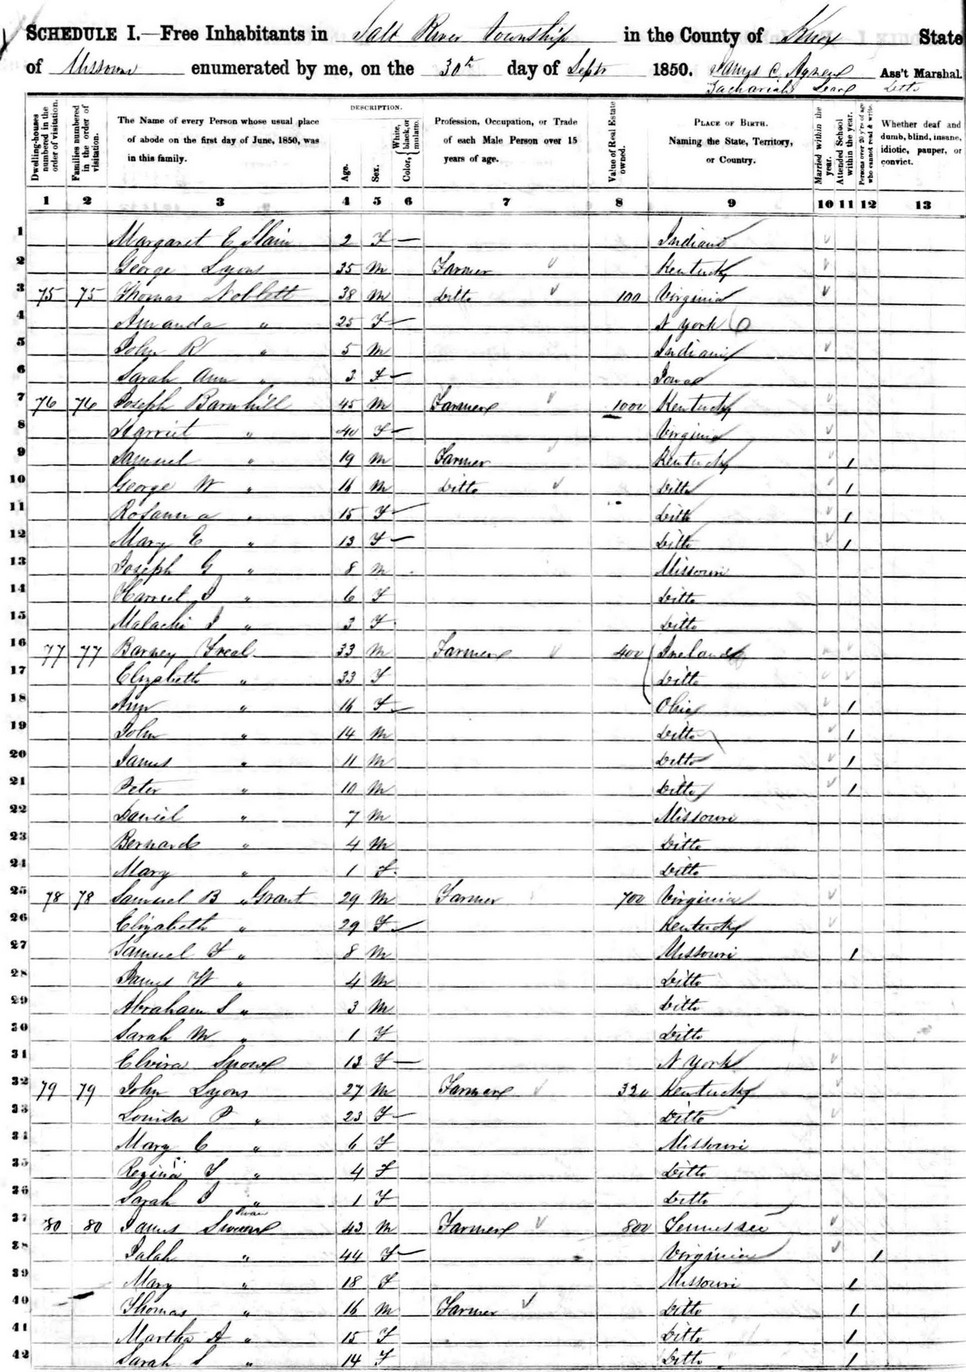 SCHEDULE I.—Free Inhabitants in Salt River Township in the County of Knox State
of Missouri enumerated by me, on the 30th day of Septr 1850. James C. Agnew Ass't Marshal.
Zachariah Ditto
Dwelling-houses numbered in the order of visitation.
Families numbered in the order of visitation.
The Name of every Person whose usual place of abode on the first day of June, 1850, was in this family.
DESCRIPTION.
Age.
Sex.
Color, White, black, or mulatto.
Profession, Occupation, or Trade of each Male Person over 15 years of age.
Value of Real Estate owned.
PLACE OF BIRTH. Naming the State, Territory, or Country.
Married within the year.
Attended School within the year.
Persons over 20 y'rs of age who cannot read & write.
Whether deaf and dumb, blind, insane, idiotic, pauper, or convict.
1 2 3 4 5 6 7 8 9 10 11 12 13
1 Margaret E Slain 2 F — Indiana
2 George Lyons 25 M Farmer Kentucky
3 75 75 Thomas Noblett 38 M Ditto 100 Virginia
4 Amanda " 25 F — N York
5 John R " 5 M Indiana
6 Sarah Ann " 3 F — Iowa
7 76 76 Joseph Barnhill 45 M Farmer 1000 Kentucky
8 Harriet " 40 F — Virginia
9 Samuel " 19 M Farmer Kentucky 1
10 George W " 16 M Ditto Ditto 1
11 Rosanna " 15 F — Ditto 1
12 Mary E " 13 F — Ditto 1
13 Joseph G " 8 M Missouri
14 Harriet J " 6 F Ditto
15 Malachi J " 3 F Ditto
16 77 77 Barney Freal 33 M Farmer 400 Ireland
17 Elizabeth " 33 F Ditto
18 Ann " 16 F — Ohio 1
19 John " 14 M Ditto 1
20 James " 11 M Ditto 1
21 Peter " 10 M Ditto 1
22 Daniel " 7 M Missouri
23 Bernard " 4 M Ditto
24 Mary " 1 F Ditto
25 78 78 Samuel B " Grant 29 M Farmer 700 Virginia
26 Elizabeth " 29 F — Kentucky
27 Samuel F " 8 M Missouri 1
28 James W " 4 M Ditto
29 Abraham S " 3 M Ditto
30 Sarah M " 1 F Ditto
31 Elvira Snow 13 F — N York
32 79 79 John Lyons 27 M Farmer 320 Kentucky
33 Louisa P " 23 F — Ditto
34 Mary C " 6 F Missouri
35 Regina F " 4 F Ditto
36 Sarah J " 1 F Ditto
37 80 80 James 43 M Farmer 800 Tennessee
38 " 44 F — Virginia 1
39 Mary " 18 F Missouri 1
40 Thomas " 16 M Farmer Ditto 1
41 Martha A " 15 F Ditto 1
42 Sarah S " 14 F Ditto 1